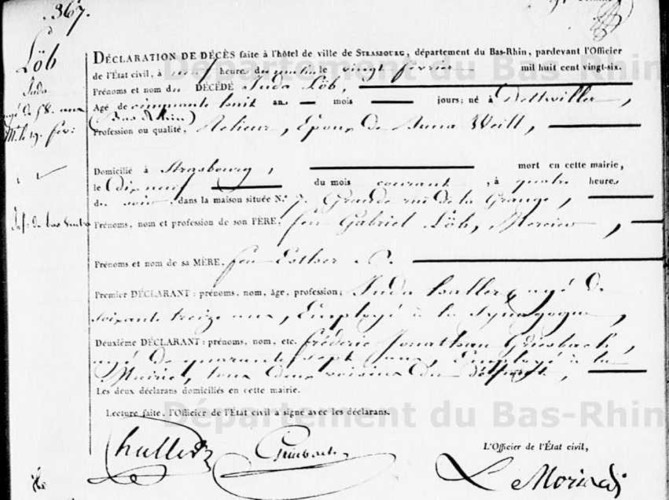 367.
Löb
Juda
âgé de 58 ans
M. le 19. fév.
DÉCLARATION DE DÉCÈS faite à l'hôtel de ville de STRASBOURG, département du Bas-Rhin, pardevant l'Officier
de l'État civil, à neuf heures du matin le vingt février mil huit cent vingt-six.
Prénoms et nom du DÉCÉDÉ Juda Löb,
Âge de cinquante huit ans mois jours; né à Dettwiller,
(Bas Rhin)
Profession ou qualité, Relieur, Epoux de Anna Weill,
Domicilié à Strasbourg, mort en cette mairie,
le dix neuf du mois courant, à quatre heures
du soir, dans la maison située N.° 7. Grande rue de la Grange,
Prénoms, nom et profession de son PÈRE, feu Gabriel Löb, Mercier,
Prénoms et nom de sa MÈRE, feu Esther
Premier DÉCLARANT: prénoms, nom, âge, profession, Juda âgé de
soixante treize ans, Employé à la Synagogue,
Deuxième DÉCLARANT: prénoms, nom, etc. Fréderic Jonathan
âgé de quarante sept ans, Employé à la
Mairie, tous deux voisins du défunt,
Les deux déclarans domiciliés en cette mairie.
Lecture faite, l'Officier de l'État civil a signé avec les déclarans.
L'Officier de l'État civil,
Département du Bas-Rhin
Département du Bas-Rhin